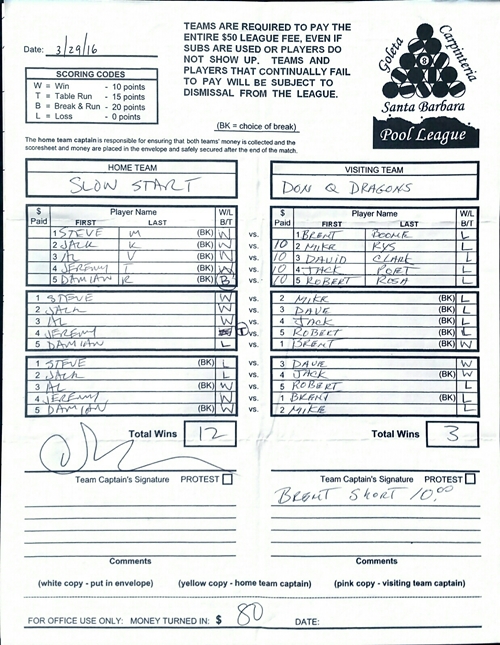 Date: 3/29/16
TEAMS ARE REQUIRED TO PAY THE
ENTIRE $50 LEAGUE FEE, EVEN IF
SUBS ARE USED OR PLAYERS DO
NOT SHOW UP. TEAMS AND
PLAYERS THAT CONTINUALLY FAIL
TO PAY WILL BE SUBJECT TO
DISMISSAL FROM THE LEAGUE.
Goleta Carpinteria
8
Santa Barbara
Pool League
SCORING CODES
W = Win - 10 points
T = Table Run - 15 points
B = Break & Run - 20 points
L = Loss - 0 points
(BK = choice of break)
The home team captain is responsible for ensuring that both teams' money is collected and the
scoresheet and money are placed in the envelope and safely secured after the end of the match.
HOME TEAM VISITING TEAM
SLOW START DON Q DRAGONS
$ Paid Player Name FIRST LAST W/L B/T $ Paid Player Name FIRST LAST W/L B/T
1 STEVE M (BK) W vs. 1 BRENT L
2 JACK K (BK) W vs. 10 2 MIKE RYS L
3 AL V (BK) W vs. 10 3 DAVID CLARK L
4 JEREMY T (BK) W vs. 10 4 JACK PORT L
5 DAMIAN R (BK) B vs. 10 5 ROBERT ROSA L
1 STEVE W vs. 2 MIKE (BK) L
2 JACK W vs. 3 DAVE (BK) L
3 AL W vs. 4 JACK (BK) L
4 JEREMY T vs. 5 ROBERT (BK) L
5 DAMIAN L vs. 1 BRENT (BK) W
1 STEVE (BK) L vs. 3 DAVE W
2 JACK L vs. 4 JACK (BK) W
3 AL (BK) W vs. 5 ROBERT L
4 JEREMY W vs. 1 BRENT (BK) L
5 DAMIAN (BK) W vs. 2 MIKE L
Total Wins 12 Total Wins 3
Team Captain's Signature PROTEST Team Captain's Signature PROTEST
BRENT SHORT 10.00
Comments Comments
(white copy - put in envelope) (yellow copy - home team captain) (pink copy - visiting team captain)
FOR OFFICE USE ONLY: MONEY TURNED IN: $ 80 DATE: